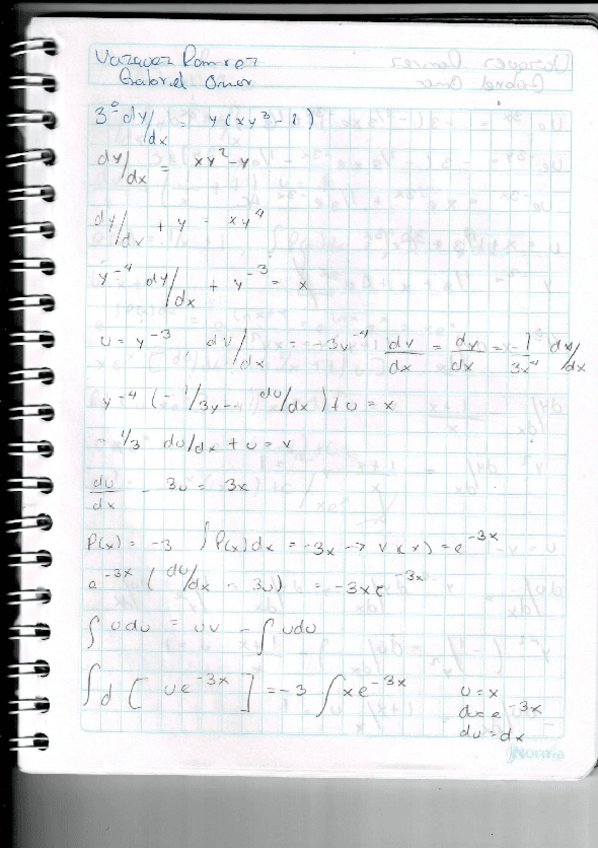 Vazquez Ramirez
Gabriel Omar
3° dy/dx = y(xy³ - 1)
dy/dx = xy² - y
dy/dx + y = xy⁴
y⁻⁴ dy/dx + y⁻³ = x
u = y⁻³ du/dx = -3y⁻⁴ dy/dx = dy/dx = - 1/3y⁻⁴ du/dx
y⁻⁴ (- 1/3y⁻⁴ du/dx) + u = x
- 1/3 du/dx + u = x
du/dx - 3u = 3x
P(x) = -3 ∫P(x)dx = -3x → v(x) = e⁻³ˣ
e⁻³ˣ (du/dx - 3u) = -3xe⁻³ˣ
∫udu = uv - ∫udu
∫d[ue⁻³ˣ] = -3∫xe⁻³ˣ u = x
du = e⁻³ˣ
du = dx
Norma